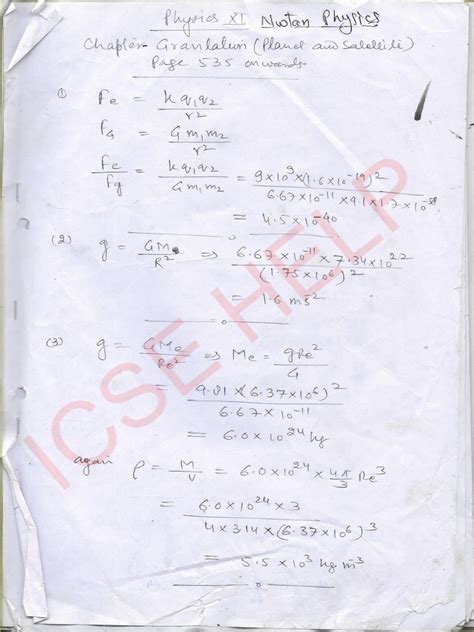 Physics XI Nootan Physics
Chapter- Gravitation (Planet and Satellite)
Page 535 onwards
(1) Fe = k q1 q2 / r²
FG = G m1 m2 / r²
Fe / Fg = k q1 q2 / G m1 m2 = 9×10⁹ × (1.6×10⁻¹⁹)² / 6.67×10⁻¹¹ × 9.1 × 1.7 × 10⁻⁵⁸
= 4.5×10⁻⁴⁰
(2) g = GMe / R² ⇒ 6.67×10⁻¹¹ × 7.34×10²² / (1.75×10⁶)²
= 1.6 ms⁻²
(3) g = GMe / Re² ⇒ Me = gRe² / G
= 9.81 × (6.37×10⁶)² / 6.67×10⁻¹¹
= 6.0×10²⁴ kg
again ρ = M / V = 6.0×10²⁴ × 4π/3 Re³
= 6.0×10²⁴ × 3 / 4×3.14×(6.37×10⁶)³
= 5.5×10³ kg m⁻³
ICSE HELP